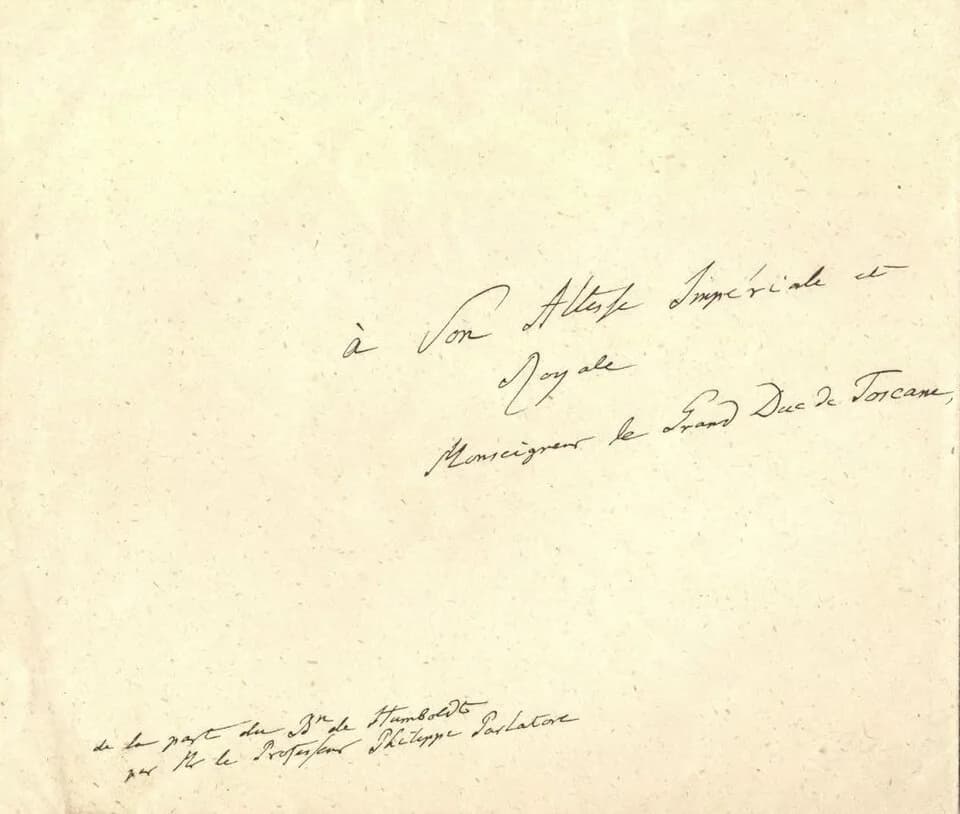 à Son Altesse Impériale et
Royale
Monseigneur le Grand Duc de Toscane,
de la part du Bn de Humboldt
par Mr le Professeur Philippe Parlatore